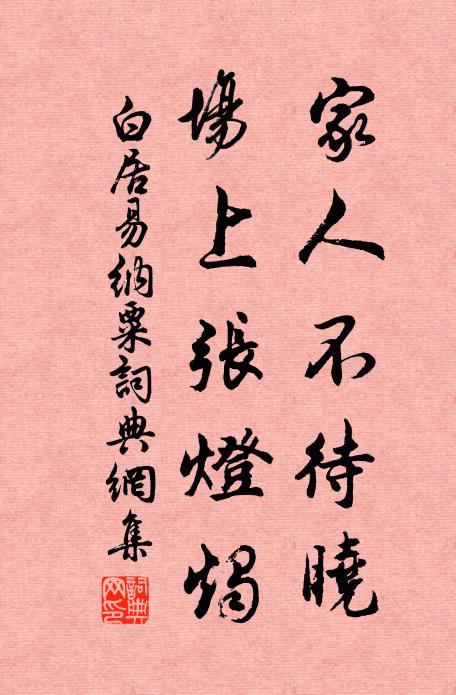 家人不待曉
場上張燈燭
白居易納粟詞典網集
詞典網印